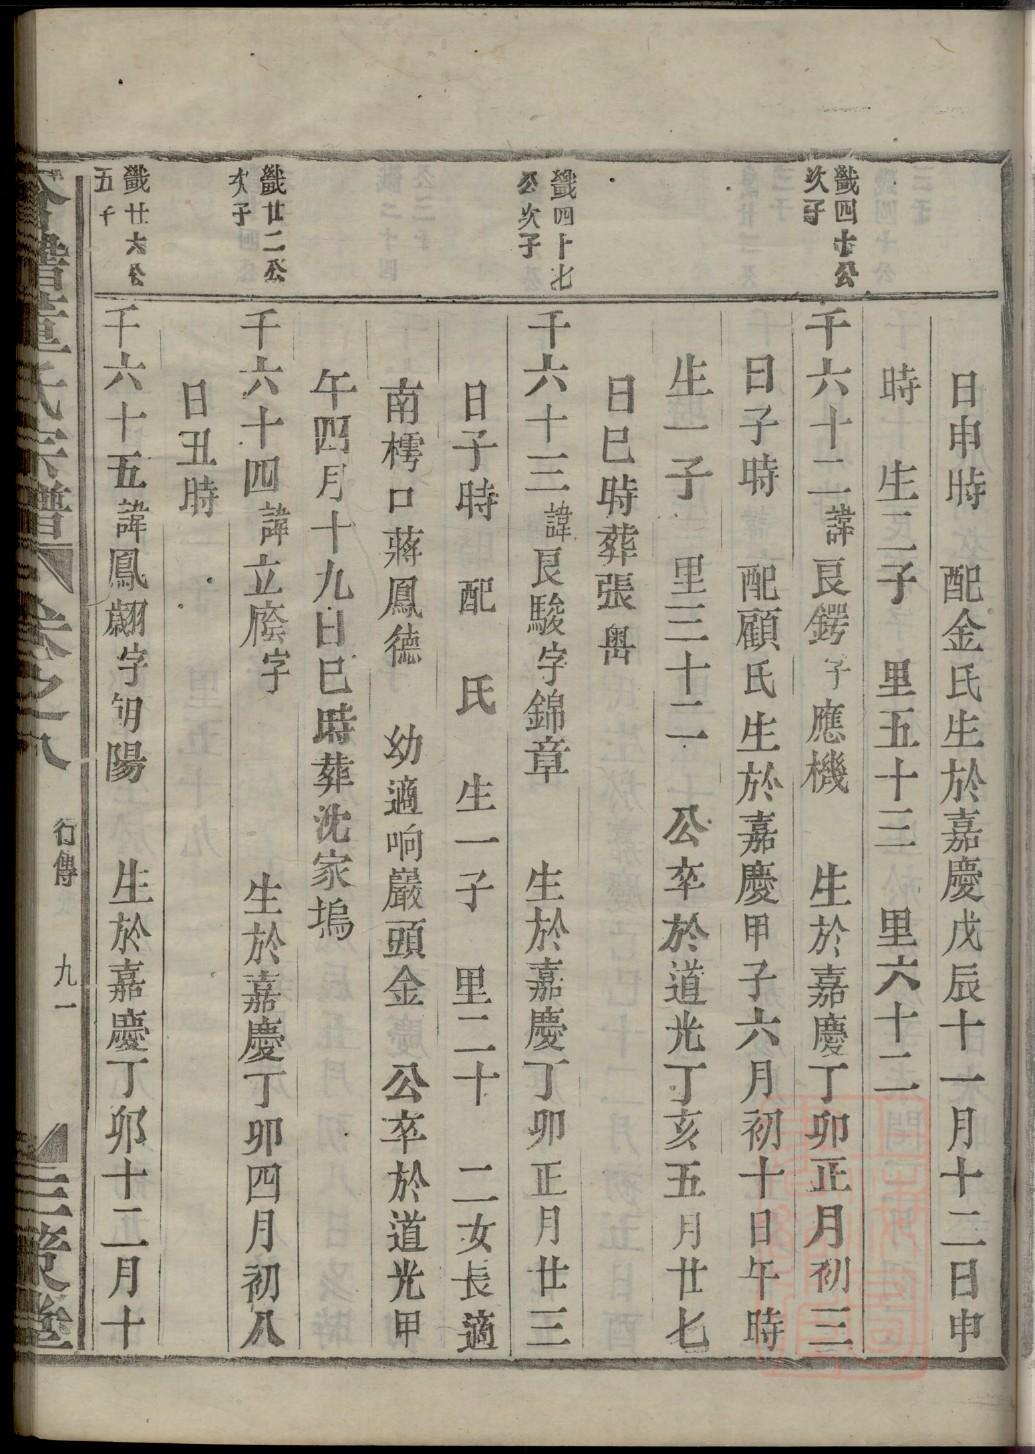 日申時　配金氏生於嘉慶戊辰十一月十二日申
時　生二子　里五十三　里六十二
鼣四十公
次子
千六十二諱良鍔字應機　生於嘉慶丁卯正月初三
日子時　配顧氏生於嘉慶甲子六月初十日午時
生一子　里三十二　公卒於道光丁亥五月廿七
日巳時葬張嶴
四十七
公次子
千六十三諱良駿字錦章　生於嘉慶丁卯正月廿三
日子時　配　氏　生一子　里二十　二女長適
南樗口蔣鳳德　幼適响巖頭金慶　公卒於道光甲
午四月十九日巳時葬沈家塢
廿二公
次子
千六十四諱立㢢字　生於嘉慶丁卯四月初八
日丑時
廿六公
五子
千六十五諱鳳翽字朝陽　生於嘉慶丁卯十二月十
譜董氏宗譜　卷之八　行傳　九一　三策堂